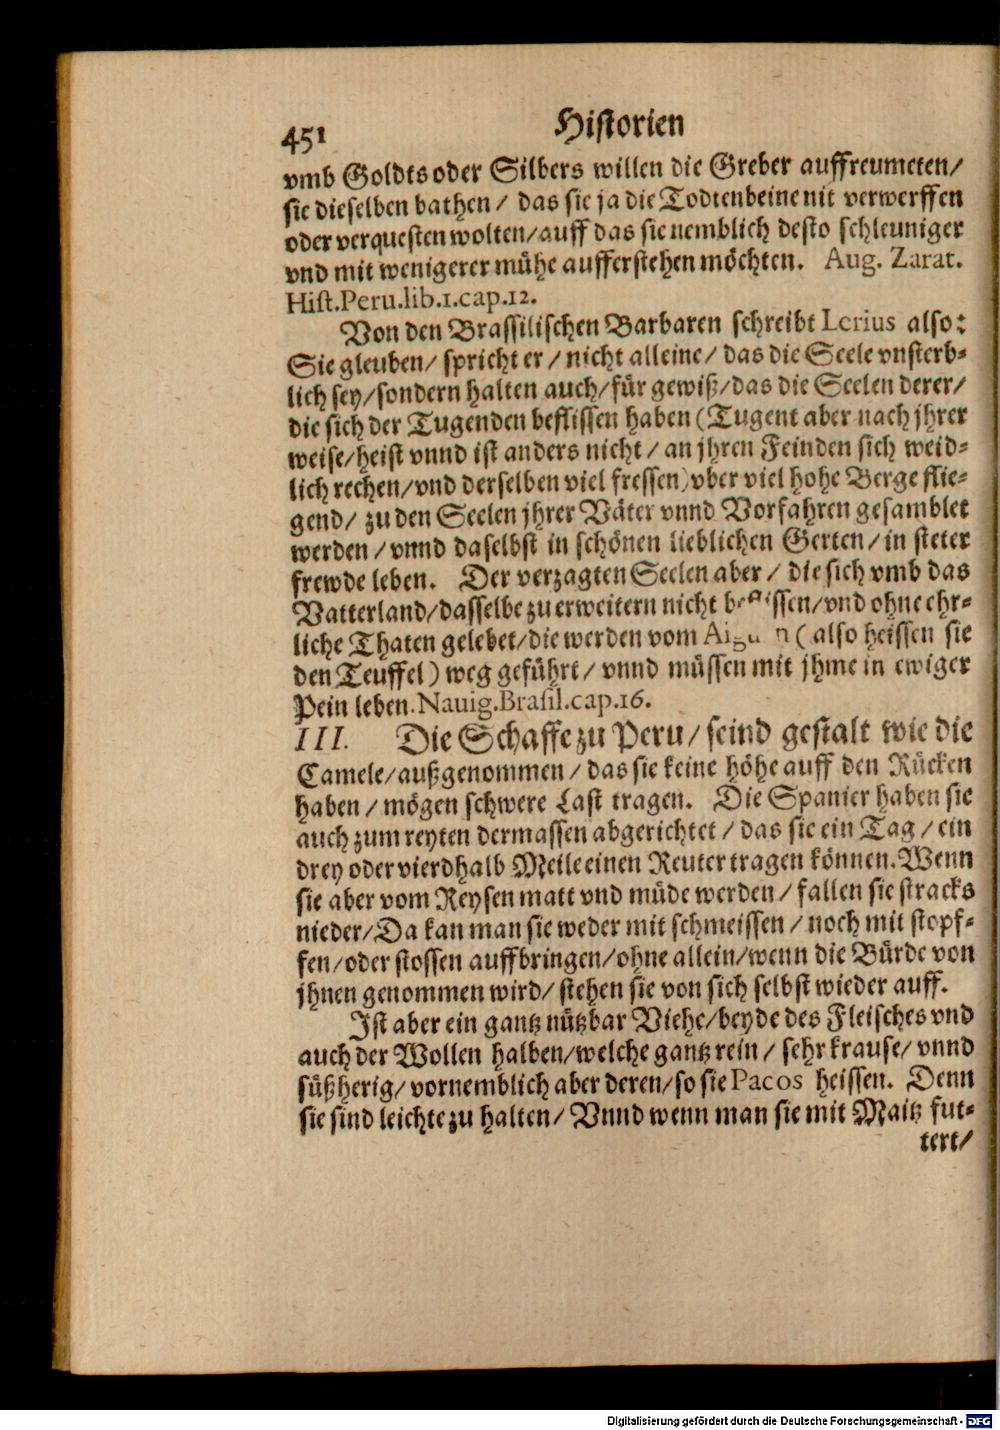 451 Historien
vmb Goldts oder Silbers willen die Greber auffreumeten/
sie dieselben bathen/ das sie ja die Todtenbeine nit verwerffen
oder verquesten wolten/auff das sie nemblich desto schleuniger
vnd mit wenigerer mühe aufferstehen möchten. Aug. Zarat.
Hist.Peru.lib.1.cap.12.
Von den Brassilischen Barbaren schreibt Lerius also:
Sie gleuben/ spricht er/ nicht alleine/ das die Seele vnsterb-
lich sey/sondern halten auch/für gewiß/das die Seelen derer/
die sich der Tugenden beflissen haben (Tugent aber nach jhrer
weise/heist vnnd ist anders nicht/ an jhren Feinden sich weid-
lich rechen/vnd derselben viel fressen)vber viel hohe Berge flie-
gend/ zu den Seelen jhrer Väter vnnd Vorfahren gesamblet
werden/ vnnd daselbst in schönen lieblichen Gerten/ in steter
frewde leben. Der verzagten Seelen aber/ die sich vmb das
Vatterland/dasselbe zu erweitern nicht beflissen/vnd ohne ehr-
liche Thaten gelebet/die werden vom (also heissen sie
den Teuffel) weg geführt/ vnnd müssen mit jhme in ewiger
Pein leben. Nauig.Brasil.cap.16.
III. Die Schaffe zu Peru/ seind gestalt wie die
Camele/außgenommen/ das sie keine höhe auff den Rücken
haben/ mögen schwere Last tragen. Die Spanier haben sie
auch zum reyten dermassen abgerichtet/ das sie ein Tag/ ein
drey oder vierdhalb Meile einen Reuter tragen können. Wenn
sie aber vom Reysen matt vnd müde werden/ fallen sie stracks
nieder/Da kan man sie weder mit schmeissen/ noch mit stopf-
fen/oder stossen auffbringen/ohne allein/wenn die Bürde von
jhnen genommen wird/ stehen sie von sich selbst wieder auff.
Ist aber ein gantz nützbar Viehe/beyde des Fleisches vnd
auch der Wollen halben/welche gantz rein/ sehr krause/ vnnd
süßherig/ vornemblich aber deren/so sie Pacos heissen. Denn
sie sind leichte zu halten/ Vnnd wenn man sie mit Maitz fut-
tert/
Digitalisierung gefördert durch die Deutsche Forschungsgemeinschaft - DFG